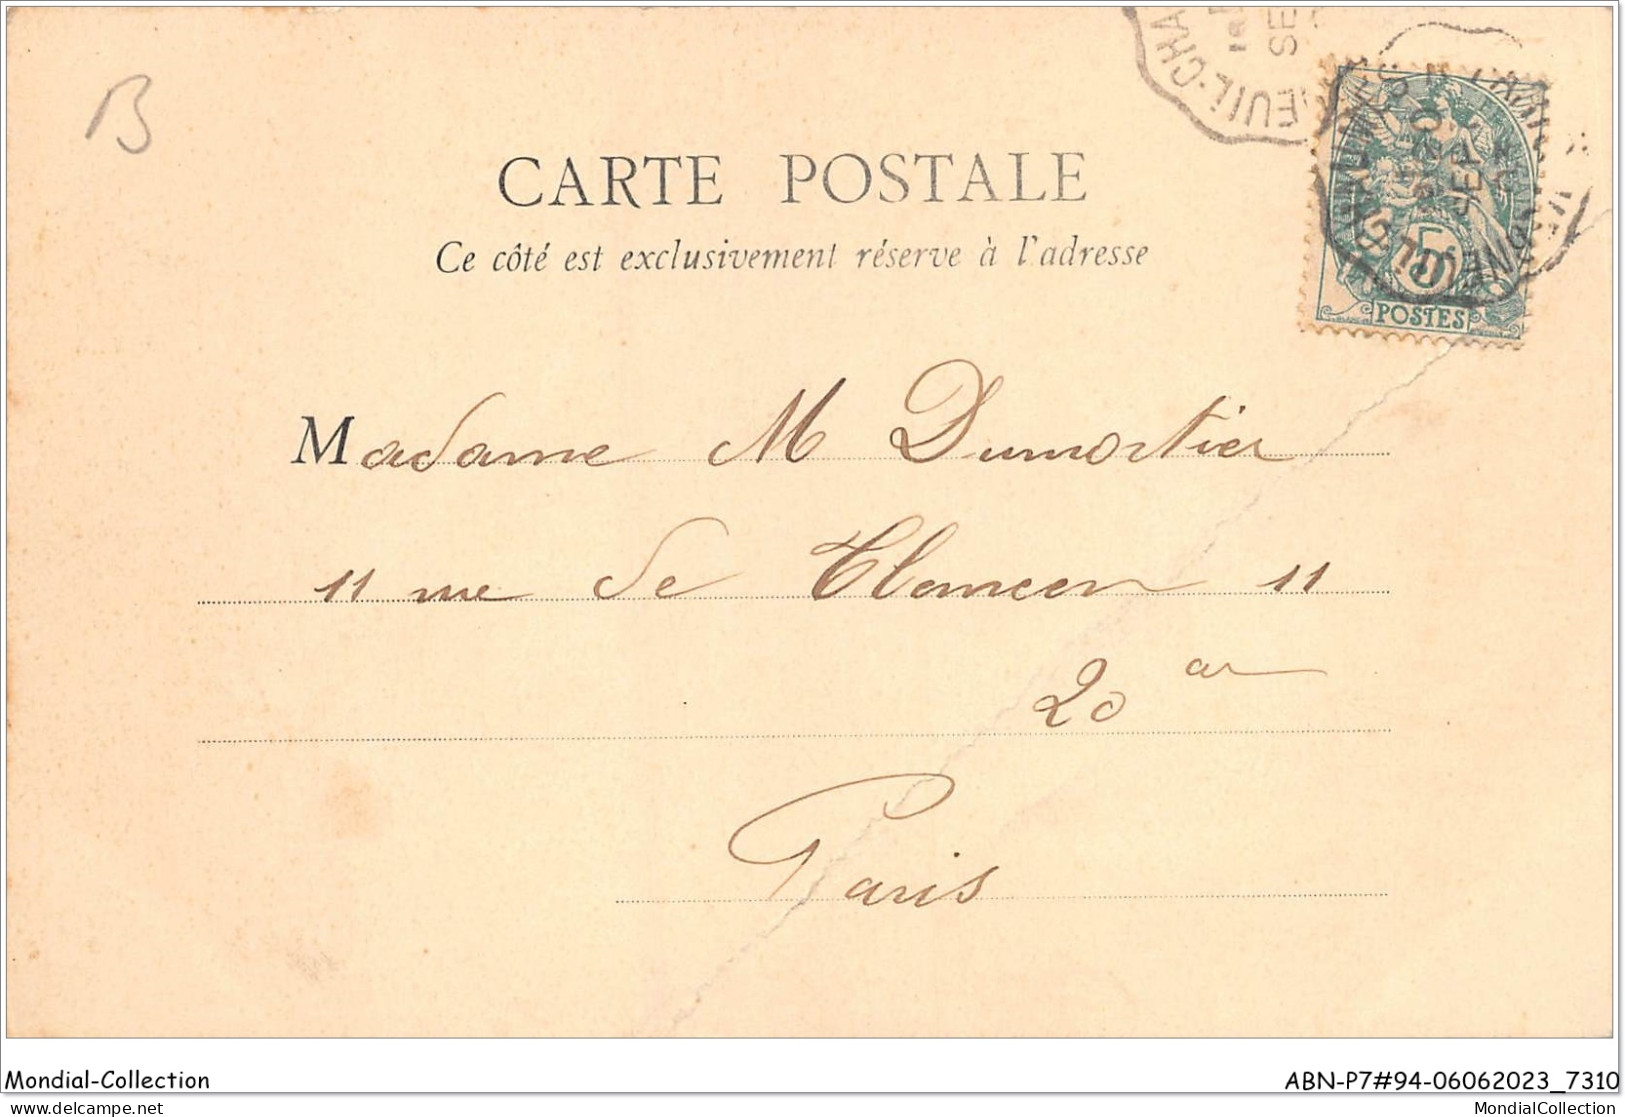 B
CARTE POSTALE
Ce côté est exclusivement réservé à l'adresse
5
POSTES
Madame M Dumortier
11 rue de Tlemcen 11
20 ar
Paris
Mondial-Collection
ABN-P7#94-06062023_7310
delcampe.net
MondialCollection